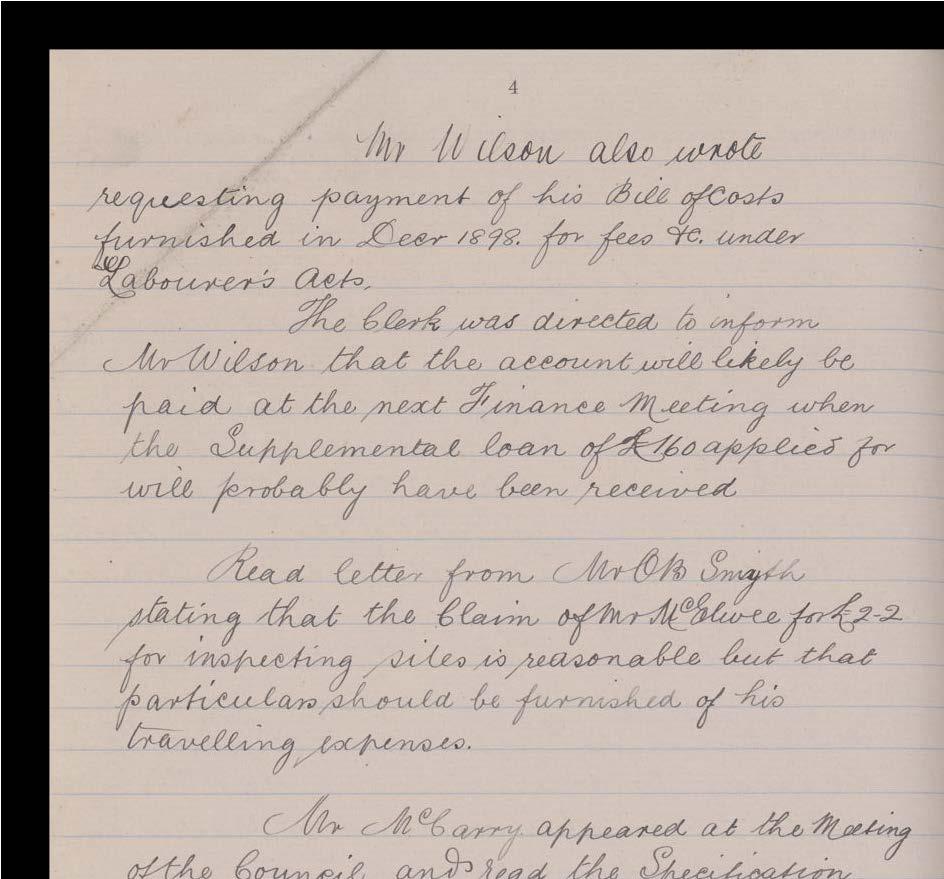 4
Mr Wilson also wrote
requesting payment of his Bill of Costs
furnished in Decr 1898. for fees &c. under
Labourer's Acts.
The Clerk was directed to inform
Mr Wilson that the account will likely be
paid at the next Finance Meeting when
the Supplemental loan of £160 applied for
will probably have been received
Read letter from Mr OB Smyth
stating that the Claim of Mr McElwee for £2-2
for inspecting sites is reasonable but that
particulars should be furnished of his
travelling expenses.
Mr McCarry appeared at the Meeting
of the Council and read the Specification